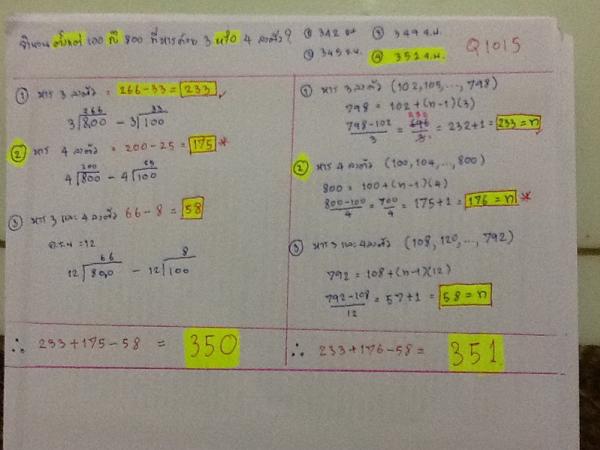 จำนวน ตั้งแต่ 100 ถึง 800 ที่หารด้วย 3 หรือ 4 ลงตัว?
① 342 จน. ③ 349 จ.น.
② 345 จ.น. ④ 351 จ.น.
Q1015
① หาร 3 ลงตัว = 266-33 = 233
266 33
3 800 - 3 100
② หาร 4 ลงตัว = 200-25 = 175 *
200 25
4 800 - 4 100
③ หาร 3 และ 4 ลงตัว 66-8 = 58
ค.ร.น =12
66 8
12 800 - 12 100
∴ 233+175-58 = 350
① หาร 3 ลงตัว (102,105,...,798)
798 = 102+(n-1)(3)
798-102/3 = 696/3 = 232+1 = 233 = n
② หาร 4 ลงตัว (100,104,...,800)
800 = 100+(n-1)(4)
800-100/4 = 700/4 = 175+1 = 176 = n *
③ หาร 3 และ 4 ลงตัว (108,120,...,792)
792 = 108+(n-1)(12)
792-108/12 = 57+1 = 58 = n
∴ 233+176-58 = 351